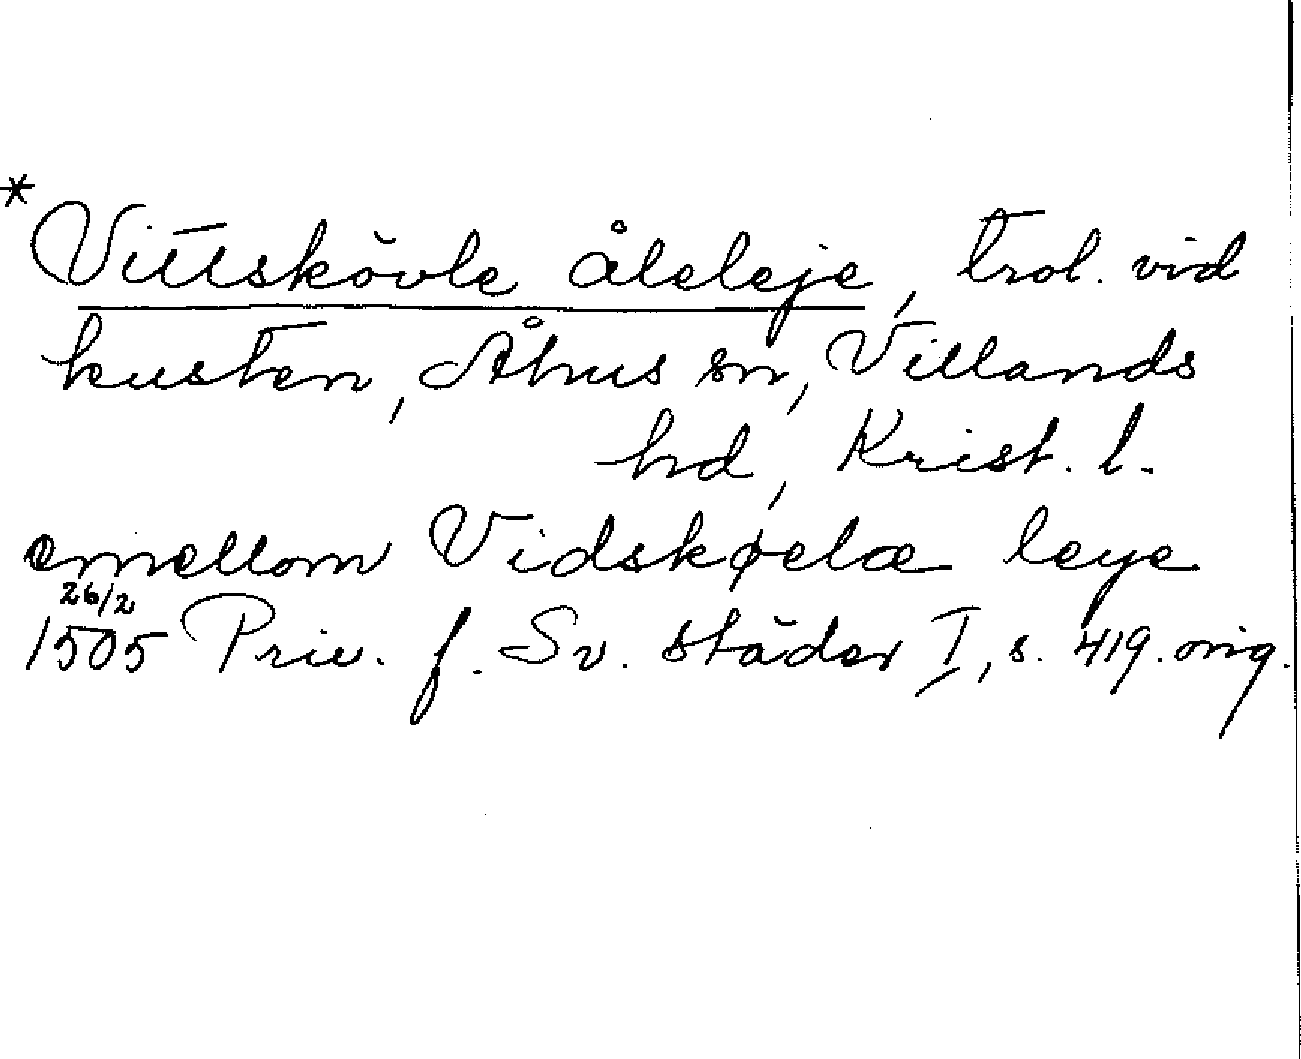 *Vittskövle åleleje, trol. vid
kusten, Åhus sn, Villands
hd, Krist. l.
emellom Vidskøelæ leye
26/2
1505 Priv. f. Sv. städer I, s. 419. orig.